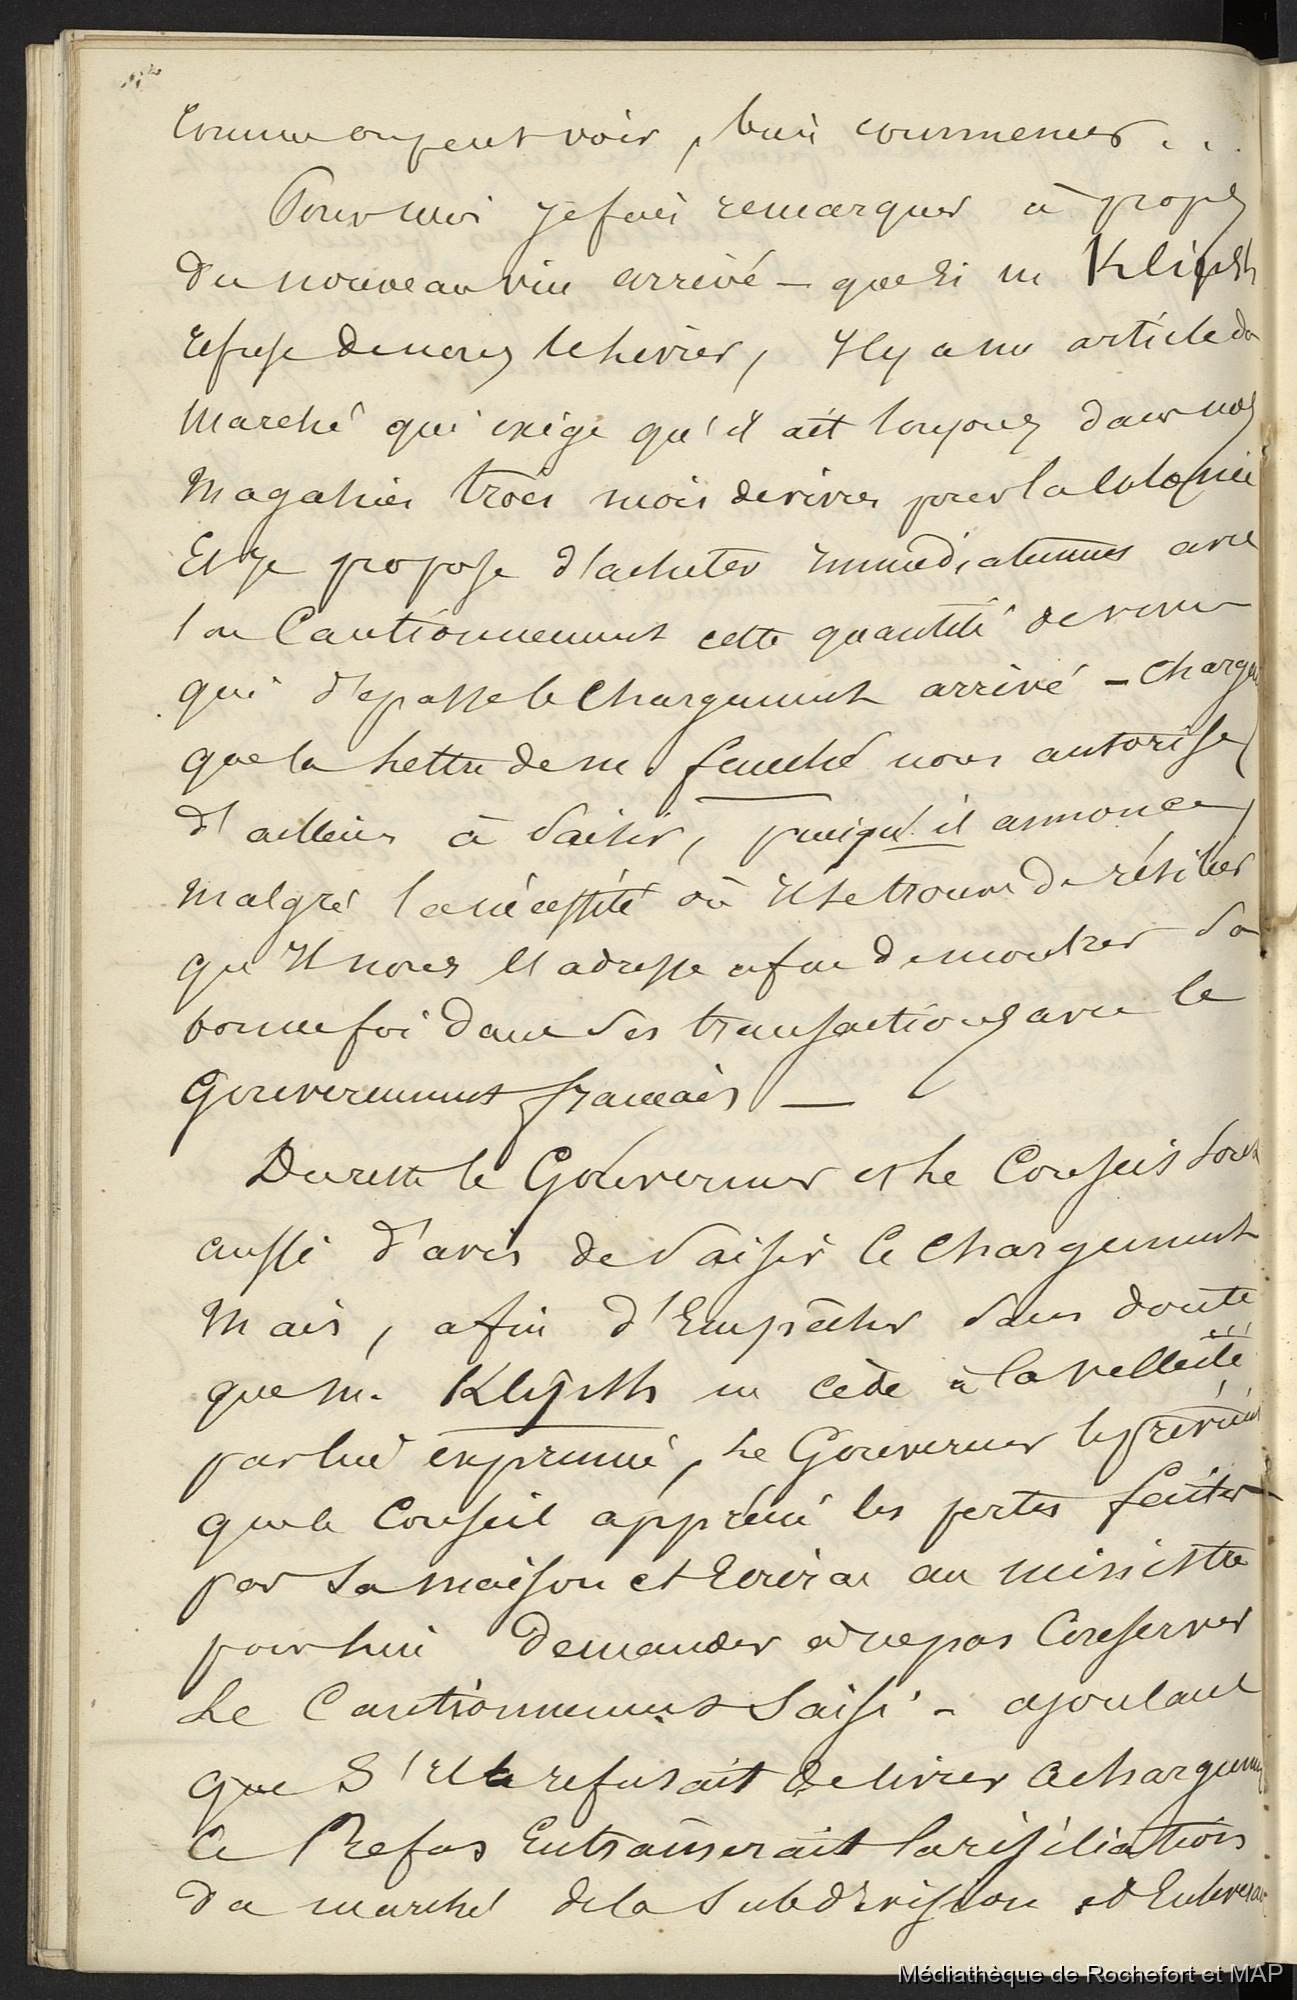 comme on peut voir, bien commencer...
Pour moi je fais remarquer à propos
du nouveau vin arrivé - que si M Klipsth
refuse de nous le livrer, Il y a un article du
Marché qui exige qu'il ait toujours dans nos
Magasins trois mois de vivres pour la colonie
Et Je propose d'acheter immédiatement avec
son Cautionnement cette quantité de vivres
qui dépasse le chargement arrivé - charge
que la lettre de M. fouché nous autorise
d'ailleurs à saisir, puisqu'il annonce,
Malgré la nécessité où Il se trouve de résilier
qu'Il nous l'adresse afin de montrer sa
bonne foi dans ses transactions avec le
Gouvernement français —
Du reste le Gouverneur et le Conseil sont
aussi d'avis de saisir le chargement
Mais, afin d'Empêcher sans doute
que M. Klipsth ne cède à la velléité
par lui exprimée, le Gouverneur le prévient
que le Conseil apprécie les pertes faites
par sa maison et Ecrira au ministre
pour lui demander à ne pas Conserver
Le Cautionnement saisi - ajoutant
que S'Il refusait de livrer ce chargement
Ce Refus Entrainerait la résiliation
du marché de la subdivision et